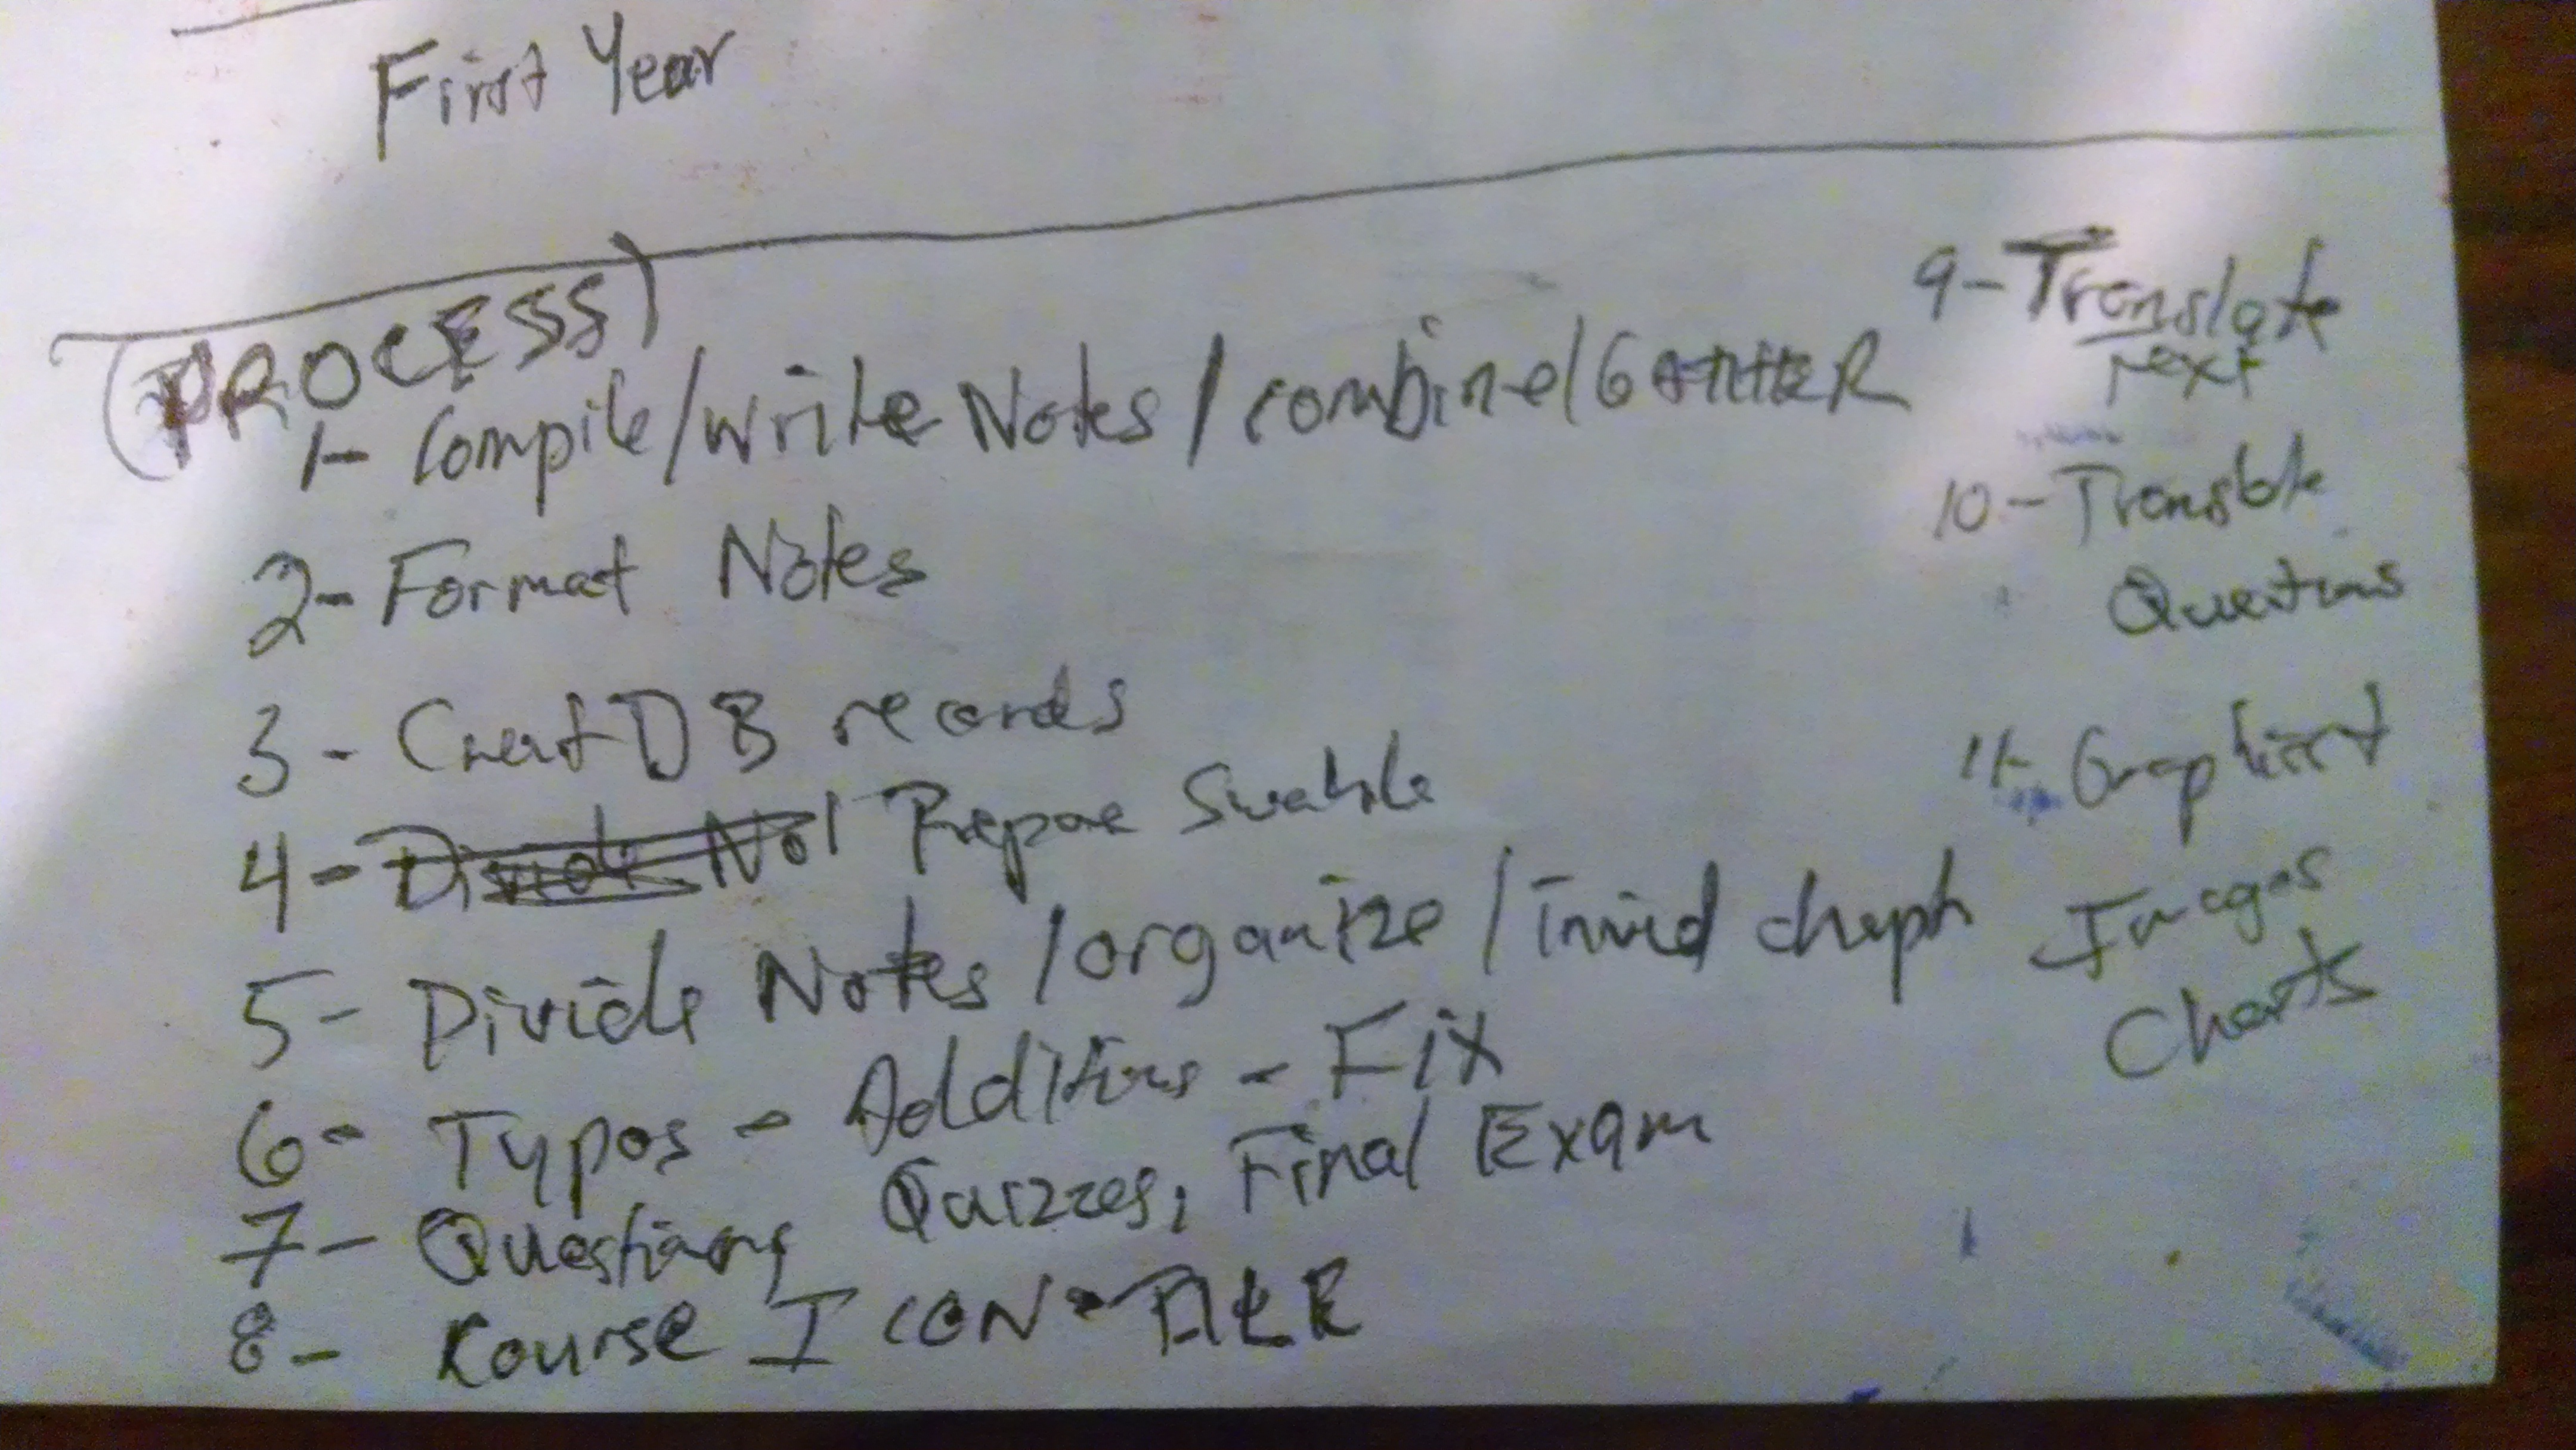 First Year
PROCESS
1- Compile/write Notes / combine/GATHER
2- Format Notes
3- Creat DB records
4- Prepare
5- Divide Notes / organize /
6- Typos - Additions - Fix
7- Questions Quizzes, Final Exam
8- Kourse ICON -
9- Translate
Text
10- Translate
Questions
11- Graphict
Images
Charts